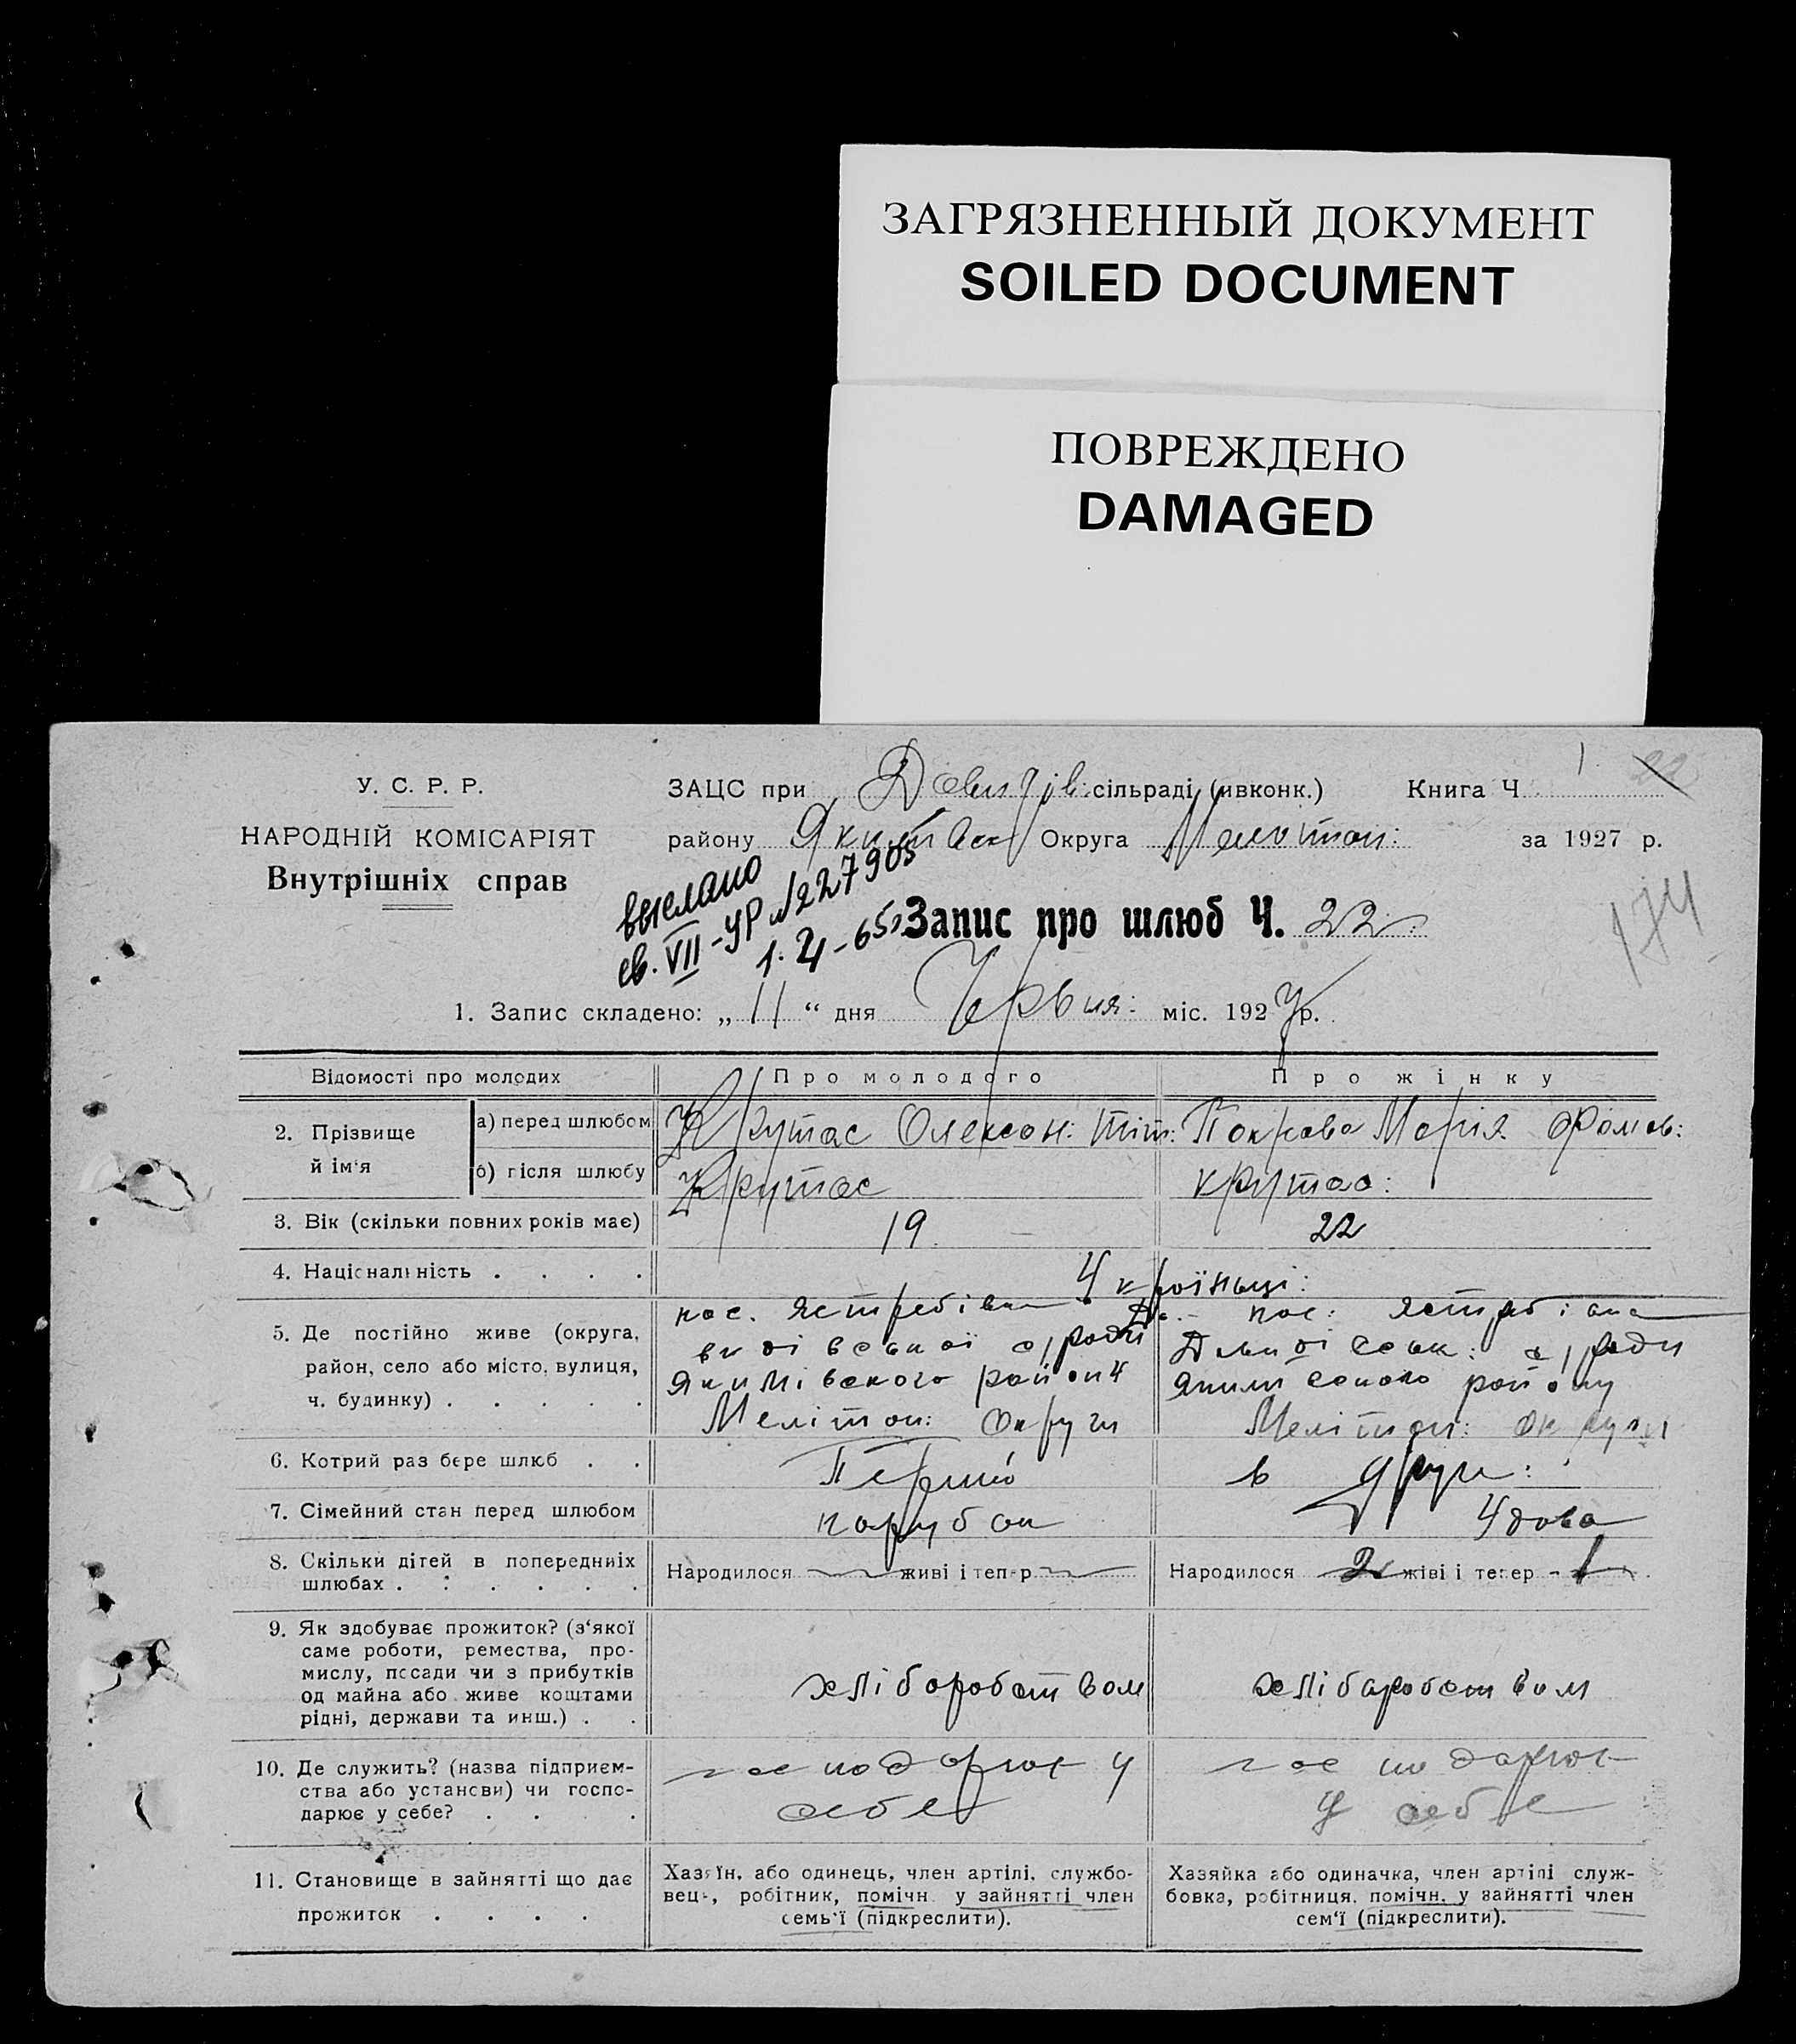 ЗАГРЯЗНЕННЫЙ ДОКУМЕНТ
SOILED DOCUMENT
ПОВРЕЖДЕНО
DAMAGED
У. С. Р. Р.
НАРОДНІЙ КОМІСАРІЯТ
Внутрішніх справ
ЗАЦС при Давидів: сільраді (ивконк.) Книга Ч 1. 22
району Якимівськ Округа Мелітоп: за 1927 р.
выслано
св. VII-УР №227905
174
Запис про шлюб Ч. 22.
1. Запис складено: „ 11 “ дня Червня: міс. 1927 р.
Відомості про молодих Про молодого Про жінку
2. Прізвище й ім‘я
а) перед шлюбом Крутас Олексан: Тит: Покрова Марія
б) після шлюбу Крутас Крутас:
3. Вік (скільки повних років має) 19. 22
4. Національність . . . . Українці:
5. Де постійно живе (округа, район, село або місто, вулиця, ч. будинку) . . . . .
пос. Ястребівка Да-
видівської с/ради
Якимівського району
Меліпоп: Округи
пос: Ястребівка
Давидівськ: с/ради
Якимівського району
Меліпоп: Округи
6. Котрий раз бере шлюб . . Перший в друг:
7. Сімейний стан перед шлюбом парубок Удова
8. Скільки дітей в попередніх шлюбах . : . . . .
Народилося — живі і тепер —
Народилося 2 жіві і тепер - 1
9. Як здобуває прожиток? (з‘якої
саме роботи, ремества, про-
мислу, посади чи з прибутків
од майна або живе коштами
рідні, держави та инш.) . .
хліборобством хліборобством
10. Де служить? (назва підприєм-
ства або установи) чи госпо-
дарює у себе? . . . .
господарює у
себе
господарює
у себе
11. Становище в зайнятті що дає
прожиток . . . .
Хазяїн, або одинець, член артілі, службо-
вець, робітник, помічн. у зайнятті член
семь‘ї (підкреслити).
Хазяйка або одиначка, член артілі служ-
бовка, робітниця, помічн. у зайнятті член
сем‘ї (підкреслити).